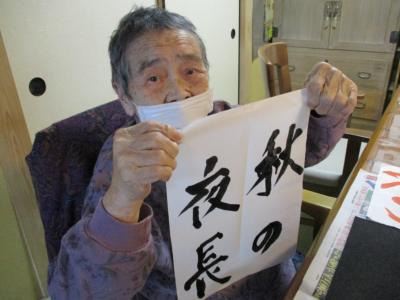 秋の
夜長